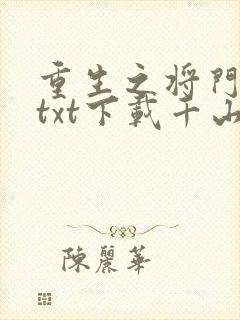 重生之将門
txt下載千山
陳麗華